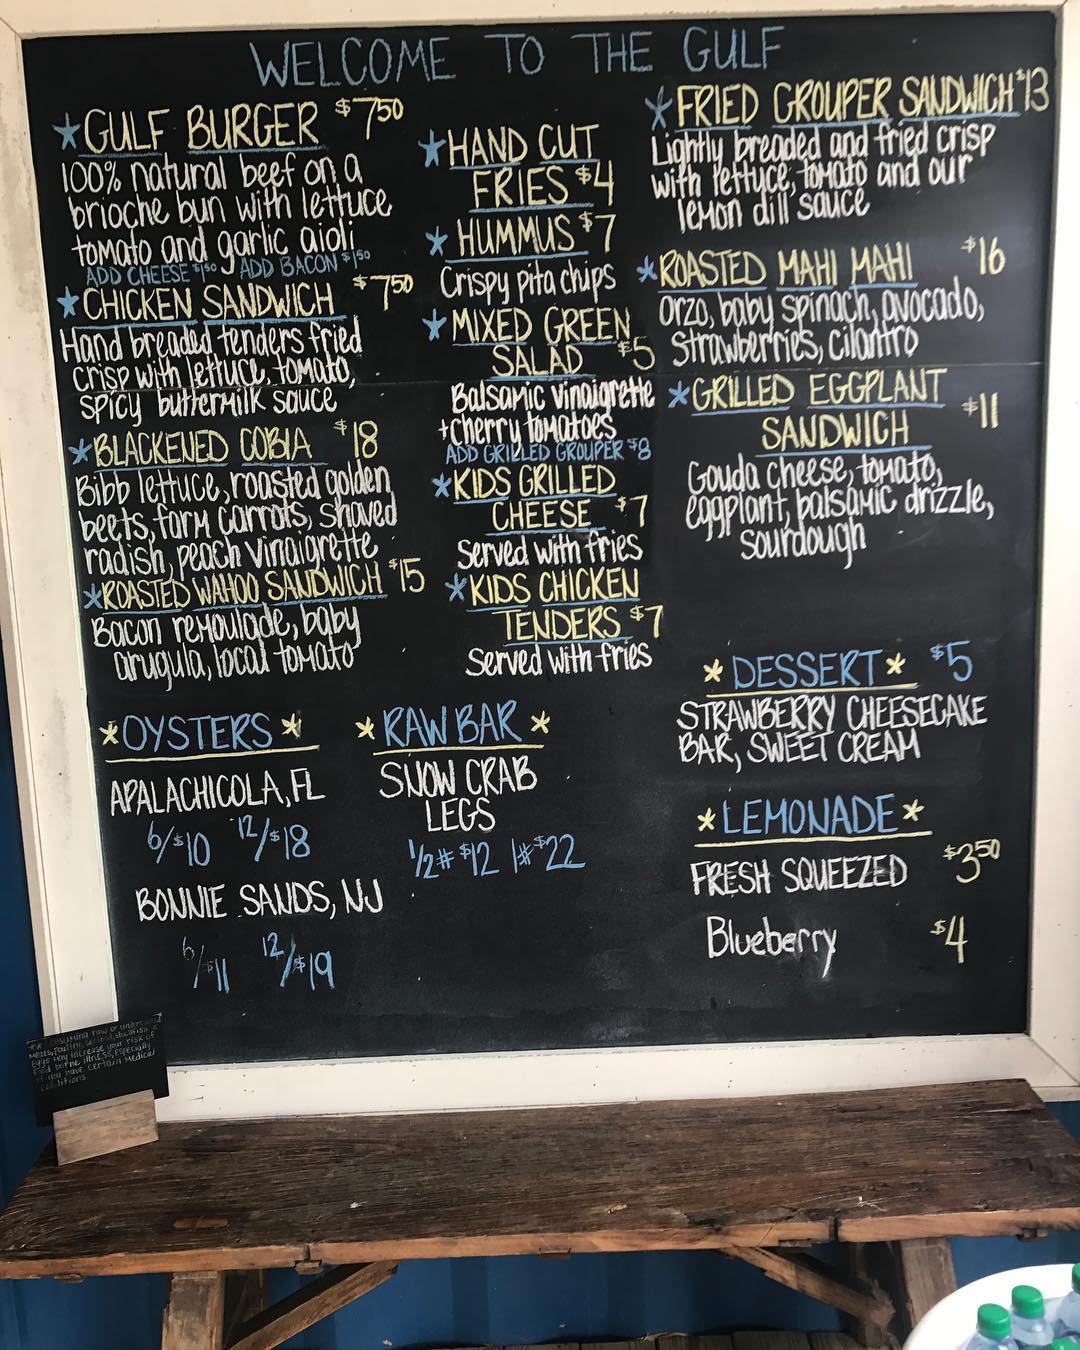 WELCOME TO THE GULF
*GULF BURGER $7.50
100% natural beef on a
brioche bun with lettuce
tomato and garlic aioli
ADD CHEESE $1.50 ADD BACON $1.50
*CHICKEN SANDWICH $7.50
Hand breaded tenders fried
crisp with lettuce, tomato,
spicy buttermilk sauce
*BLACKENED COBIA $18
Bibb lettuce, roasted golden
beets, farm carrots, shaved
radish, peach vinaigrette
*ROASTED WAHOO SANDWICH $15
Bacon remoulade, baby
arugula, local tomato
*HAND CUT
FRIES $4
*HUMMUS $7
Crispy pita chips
*MIXED GREEN
SALAD $5
Balsamic vinaigrette
+cherry tomatoes
ADD GRILLED GROUPER $8
*KIDS GRILLED
CHEESE $7
Served with fries
*KIDS CHICKEN
TENDERS $7
Served with fries
*FRIED GROUPER SANDWICH $13
Lightly breaded and fried crisp
with lettuce, tomato and our
lemon dill sauce
*ROASTED MAHI MAHI $16
Orzo, baby spinach, avocado,
strawberries, cilantro
*GRILLED EGGPLANT
SANDWICH $11
Gouda cheese, tomato,
eggplant, balsamic drizzle,
sourdough
*OYSTERS*
APALACHICOLA, FL
6/$10 12/$18
BONNIE SANDS, NJ
6/$11 12/$19
*RAW BAR*
SNOW CRAB
LEGS
1/2# $12 1# $22
*DESSERT* $5
STRAWBERRY CHEESECAKE
BAR, SWEET CREAM
*LEMONADE*
FRESH SQUEEZED $3.50
Blueberry $4
consuming raw or undercooked
meats, poultry, seafood, shellfish or
eggs may increase your risk of
food borne illness, especially
if you have certain medical
conditions